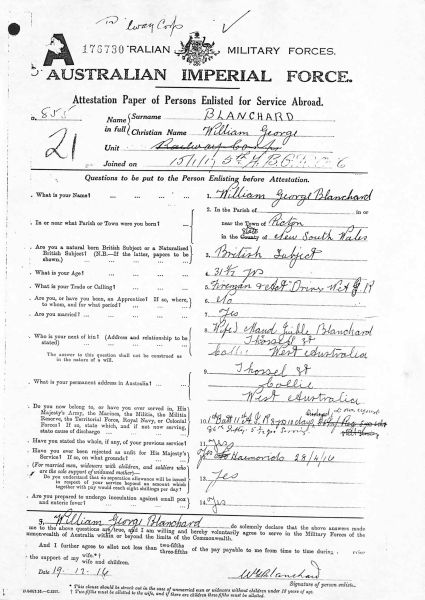 Railway Corps
A 176730 RALIAN MILITARY FORCES.
AUSTRALIAN IMPERIAL FORCE.
Attestation Paper of Persons Enlisted for Service Abroad.
855
21
Name in full
Surname BLANCHARD
Christian Name William George
Unit Railway Corps
Joined on 15/1/17
Questions to be put to the Person Enlisting before Attestation.
1. What is your Name? 1. William George Blanchard
2. In or near what Parish or Town were you born? 2. In the Parish of in or
near the Town of Picton
in the County of State New South Wales
3. Are you a natural born British Subject or a Naturalised British Subject? (N.B.—If the latter, papers to be shown.) 3. British Subject
4. What is your Age? 4.
5. What is your Trade or Calling? 5. Fireman & Act Driver W.A.G.R
6. Are you, or have you been, an Apprentice? If so, where, to whom, and for what period? 6. No
7. Are you married? 7. Yes
8. Who is your next of kin? (Address and relationship to be stated) 8. (Wife) Maud Blanchard
Throssel St
Collie West Australia
The answer to this question shall not be construed as in the nature of a will.
9. What is your permanent address in Australia? 9. Throssel St
Collie
West Australia
10. Do you now belong to, or have you ever served in, His Majesty's Army, the Marines, the Militia, the Militia Reserve, the Territorial Force, Royal Navy, or Colonial Forces? If so, state which, and if not now serving, state cause of discharge
11. Have you stated the whole, if any, of your previous service? 11. Yes
12. Have you ever been rejected as unfit for His Majesty's Service? If so, on what grounds? Yes Haemorrhoids 28/4/16
13. (For married men, widowers with children, and soldiers who are the sole support of widowed mother)—
Do you understand that no separation allowance will be issued in respect of your service beyond an amount which together with pay would reach eight shillings per day? 13. Yes
14. Are you prepared to undergo inoculation against small pox and enteric fever? 14. Yes
I, William George Blanchard do solemnly declare that the above answers made
by me to the above questions are true, and I am willing and hereby voluntarily agree to serve in the Military Forces of the
Commonwealth of Australia within or beyond the limits of the Commonwealth.
And I further agree to allot not less than two-fifths three-fifths of the pay payable to me from time to time during
the support of my wife.* wife and children.
Date 19-12-16 W G Blanchard
Signature of person enlisted.
* This clause should be struck out in the case of unmarried men or widowers without children under 18 years of age